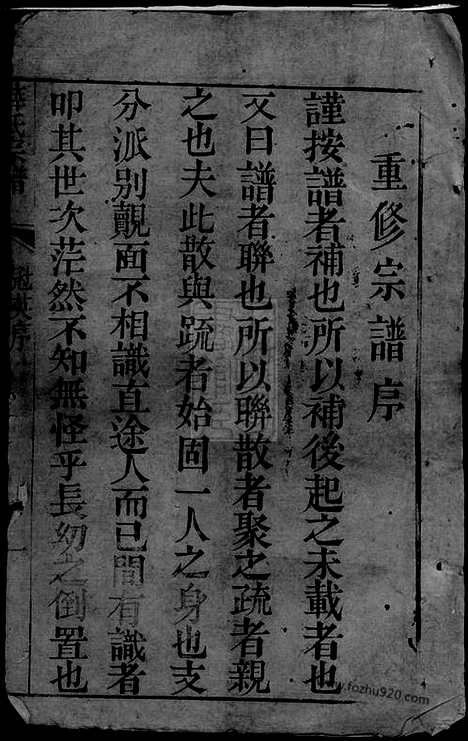 重修宗譜序
謹按譜者補也所以補後起之未載者也
又曰譜者聯也所以聯散者聚之疏者親
之也夫此散與疏者始固一人之身也支
分派別覿面不相識直途人而已間有識者
叩其世次茫然不知無怪乎長幼之倒置也
氏宗譜 序 一
www.fozhu920.com